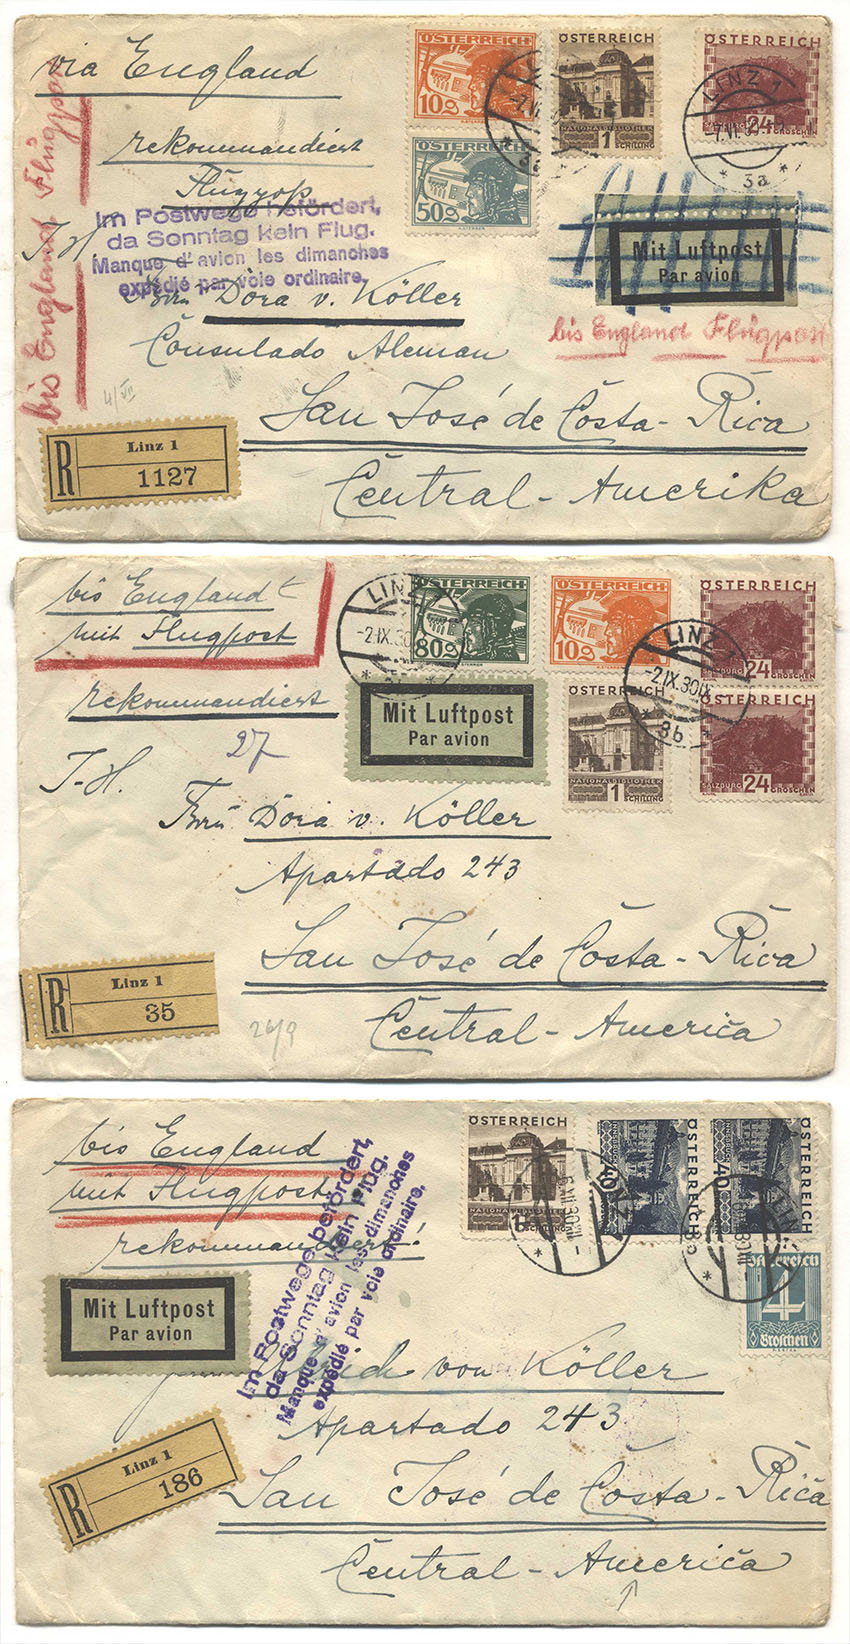 via England
rekommandiert
Flugpost
Im Postwege befördert,
da Sonntag kein Flug.
Manque d'avion les dimanches
expédié par voie ordinaire.
ÖSTERREICH
10g
ÖSTERREICH
50g
ÖSTERREICH
NATIONALBIBLIOTHEK
1 SCHILLING
ÖSTERREICH
24 GROSCHEN
LINZ 1
* 3a *
Mit Luftpost
Par avion
bis England Flugpost
bis England Flugpost
T.H.
Dora v. Köller
Consulado Aleman
San José de Costa-Rica
Central-Amerika
4/VII
R
Linz 1
1127
bis England
mit Flugpost
rekommandiert
27
T-H.
LINZ 1
-2.IX.30
ÖSTERREICH
80g
ÖSTERREICH
10g
ÖSTERREICH
SALZBURG 24 GROSCHEN
ÖSTERREICH
NATIONALBIBLIOTHEK
1 SCHILLING
ÖSTERREICH
SALZBURG 24 GROSCHEN
LINZ 1
-2.IX.30
* 3b *
Mit Luftpost
Par avion
Frau Dora v. Köller
Apartado 243
San José de Costa-Rica
Central-America
R
Linz 1
35
26/9
bis England
mit Flugpost
rekommandiert!
Im Postwege befördert,
da Sonntag kein Flug.
Manque d'avion les dimanches
expédié par voie ordinaire.
ÖSTERREICH
1 SCHILLING
ÖSTERREICH
40
ÖSTERREICH
40
LINZ
Österreich
4
Groschen
Mit Luftpost
Par avion
von Köller
Apartado 243
San José de Costa-Rica
Central-America
R
Linz 1
186